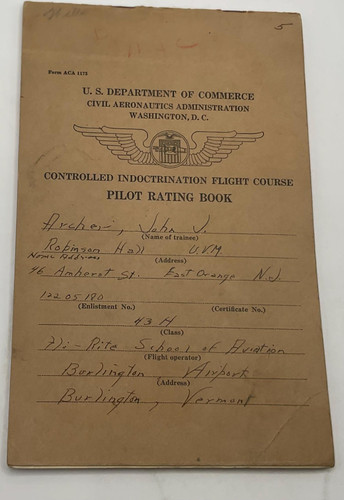 5
Form ACA 1175
U. S. DEPARTMENT OF COMMERCE
CIVIL AERONAUTICS ADMINISTRATION
WASHINGTON, D. C.
CONTROLLED INDOCTRINATION FLIGHT COURSE
PILOT RATING BOOK
Archer, John J.
(Name of trainee)
Robinson Hall U.V.M
(Address)
Home Address
46 Amherst St. East Orange N.J.
12205180
(Enlistment No.) (Certificate No.)
43 H
(Class)
Fli-Rite School of Aviation
(Flight operator)
Burlington Airport
(Address)
Burlington, Vermont